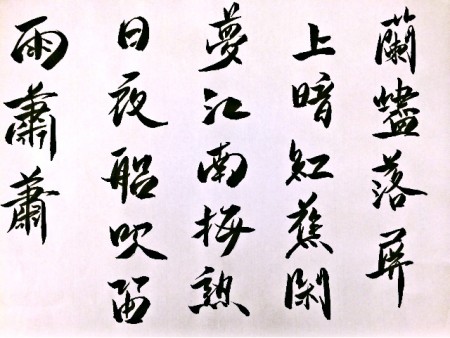 蘭燼落屏
上暗紅蕉閑
夢江南梅熟
日夜船吹笛
雨蕭蕭